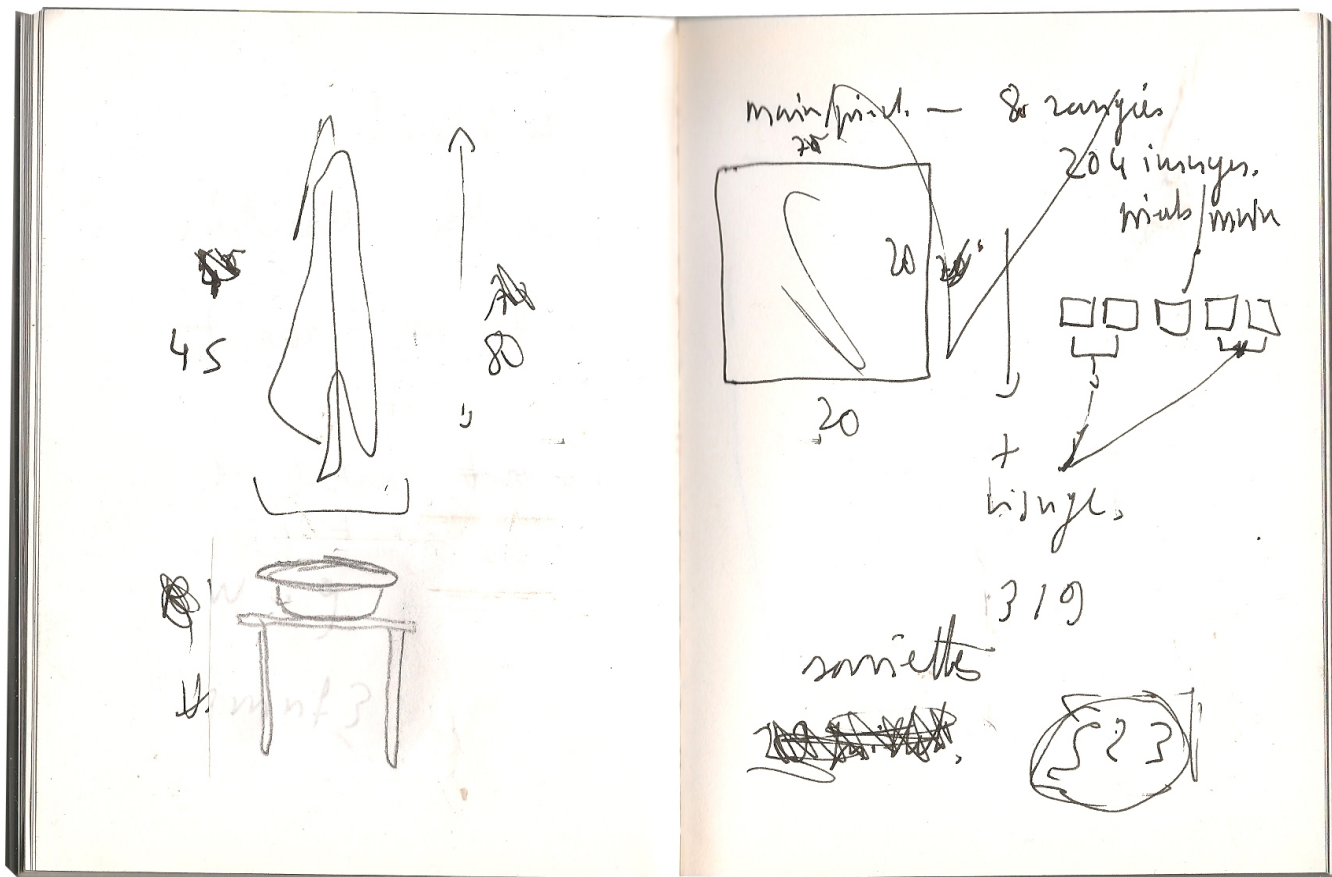 45
80
main/pied. — 8 rangées
204 images.
pieds/main
20
20
+
visage.
319
serviettes
523